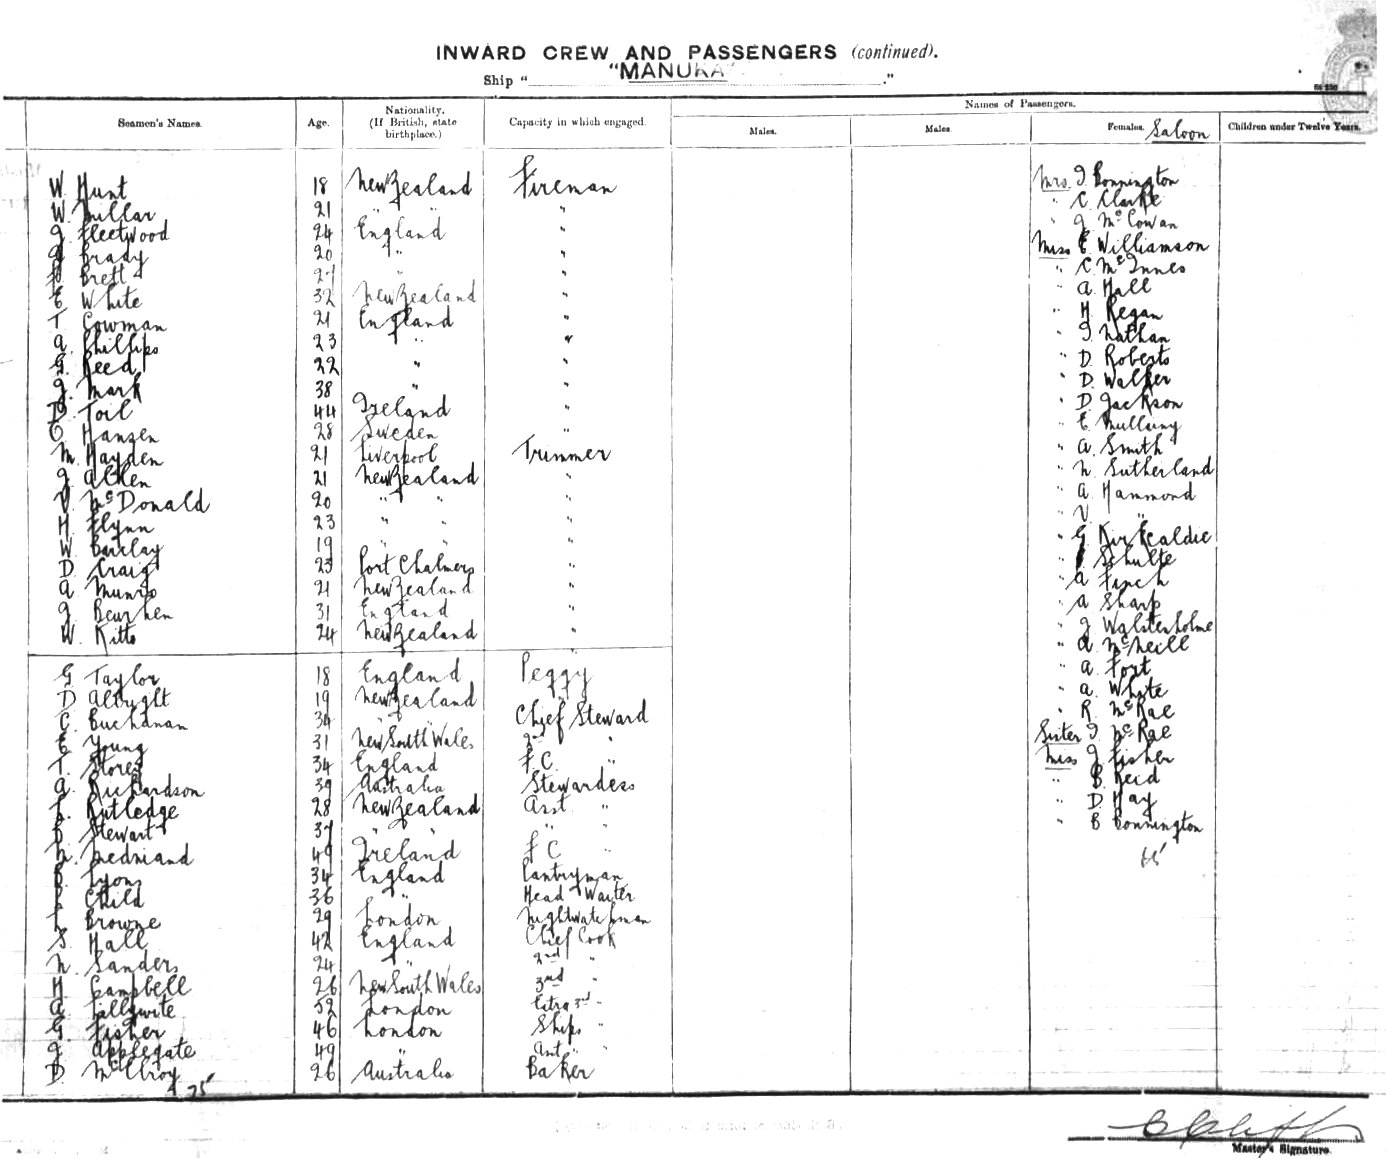 INWARD CREW AND PASSENGERS (continued).
Ship " "MANUKA" ."
Seamen's Names. Age. Nationality. (If British, state birthplace.) Capacity in which engaged. Names of Passengers.
Males. Males. Females. Saloon Children under Twelve Years.
W. Hunt 18 New Zealand Fireman
W. Millar 21 " " "
J. Fleetwood 24 England "
Brady 20 " "
Brett 27 " "
E. White 32 New Zealand "
T. Cowman 21 England "
A. Phillips 23 " "
G. Reed 22 " "
J. Mark 38 " "
D. Toil 44 Ireland "
O. Hansen 28 Sweden "
M. Hayden 21 Liverpool Trimmer
J. Aitken 21 New Zealand "
V. McDonald 20 " " "
H. Flynn 23 " " "
W. Barclay 19 " " "
D. Craig 23 Port Chalmers "
A. Munro 21 New Zealand "
J. 31 England "
W. Kitto 24 New Zealand "
G. Taylor 18 England Peggy
D. Albright 19 New Zealand "
C. Buchanan 34 " " Chief Steward
E. Young 31 New South Wales 2nd "
T. Storey 34 England F.C. "
A. Rickardson 39 Australia Stewardess
L. Rutledge 28 New Zealand Asst "
Stewart 37 " " " "
49 Ireland F C "
Lyons 34 England Pantryman
Child 36 " Head Waiter
Browne 29 London Nightwatchman
S. Hall 42 England Chief Cook
N. Sanders 24 " 2nd "
H. Campbell 26 New South Wales 3rd "
A. Lillywite 52 London Extra 3rd "
G. Fisher 46 London Ships "
J. Applegate 49 " Asst " "
D. McIlroy 26 Australia Baker
75
Mrs. I. Bonnington
" C. Clarke
" J. McCowan
Miss E. Williamson
" C. McInnes
" A. Hall
" H. Regan
" I. Nathan
" D. Roberts
" D. Walker
" D. Jackson
" E.
" A. Smith
" N. Sutherland
" A. Hammond
" V. "
" G. Kirkcaldie
" Schulte
" A. Finch
" A. Sharp
" J. Wolstenholme
" A. McNeill
" A. Fort
" A. White
" R. McRae
Sister I. McRae
Miss J. Fisher
" B. Reid
" D. Hay
" B Bonnington
Master's Signature.